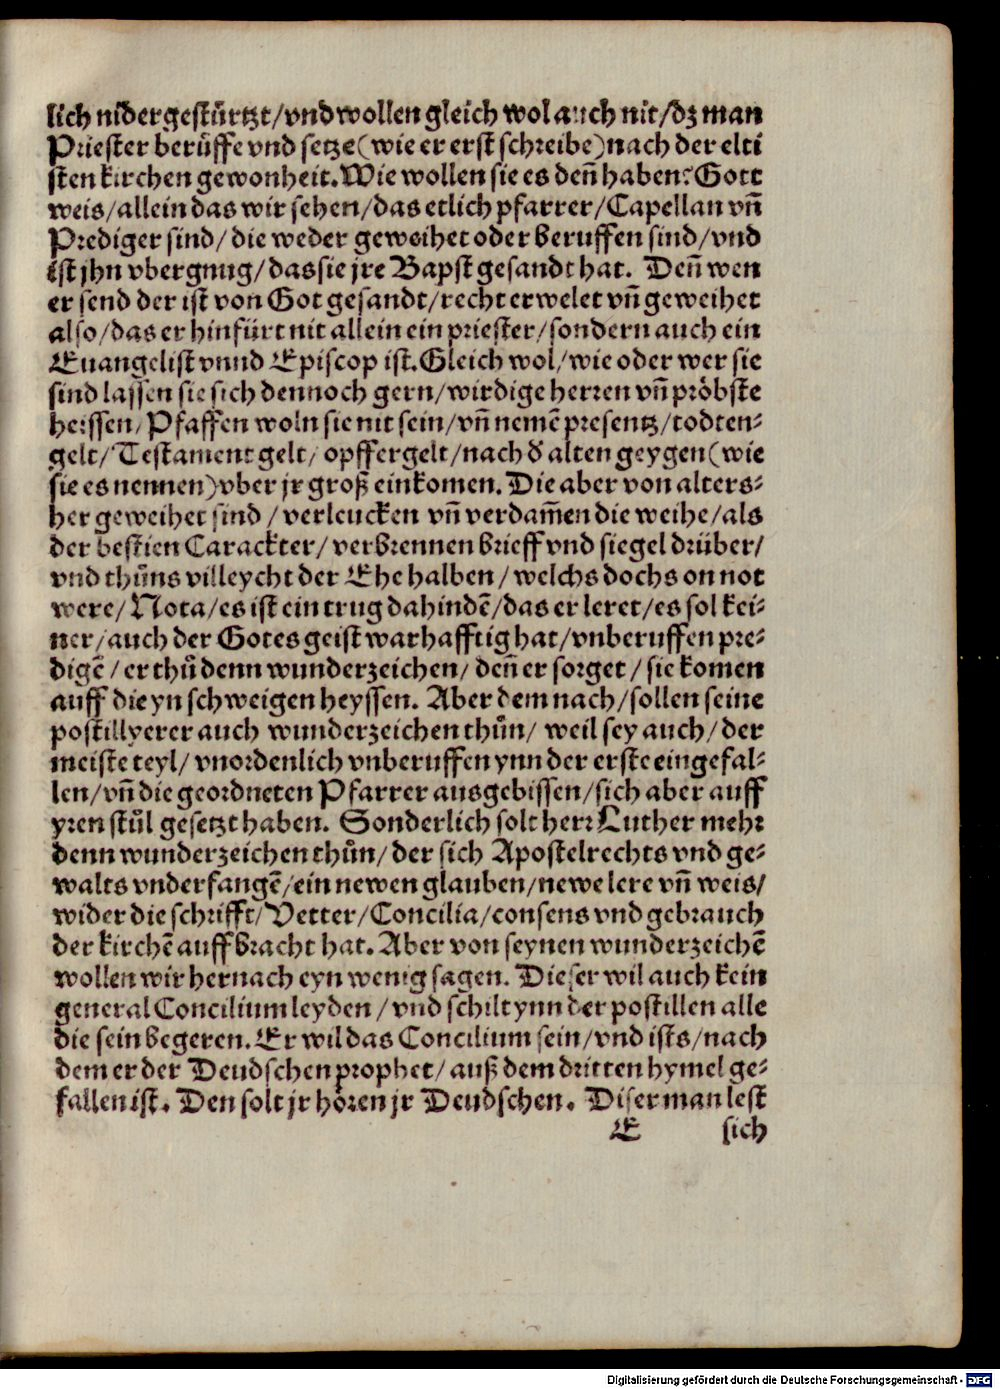 lich nidergestürtzt/vnd wollen gleich wol auch nit/dz man
Priester berüffe vnd setze(wie er erst schreibe)nach der elti
sten kirchen gewonheit.Wie wollen sie es deñ haben?Gott
weis/allein das wir sehen/das etlich pfarrer/Capellan vñ
Prediger sind/die weder geweihet oder beruffen sind/vnd
ist jhn vbergnug/das sie jre Bapst gesandt hat. Deñ wen
er send der ist von Got gesandt/recht erwelet vñ geweihet
also/das er hinfürt nit allein ein priester/sondern auch ein
Euangelist vnnd Episcop ist.Gleich wol/wie oder wer sie
sind lassen sie sich dennoch gern/wirdige herren vñ pröbste
heissen/Pfaffen woln sie nit sein/vñ nemẽ presentz/todten⸗
gelt/Testament gelt/opffergelt/nach d' alten geygen(wie
sie es nennen)vber jr groß einkomen.Die aber von alters⸗
her geweihet sind/verleucken vñ verdam̃en die weihe/als
der bestien Carackter/verbrennen brieff vnd siegel drüber/
vnd thůns villeycht der Ehe halben/welchs dochs on not
were/Nota/es ist ein trug dahindẽ/das er leret/es sol kei⸗
ner/auch der Gotes geist warhafftig hat/vnberuffen pre⸗
digẽ/er thů denn wunderzeichen/deñ er sorget/sie komen
auff die yn schweigen heyssen. Aber dem nach/sollen seine
postillyerer auch wunderzeichen thůn/weil sey auch/der
meiste teyl/vnordenlich vnberuffen ynn der erste eingefal⸗
len/vñ die geordneten Pfarrer ausgebissen/sich aber auff
yren stůl gesetzt haben. Sonderlich solt herr Luther mehr
denn wunderzeichen thůn/der sich Apostelrechts vnd ge⸗
walts vnderfangẽ/ein newen glauben/newe lere vñ weis/
wider die schrifft/Vetter/Concilia/consens vnd gebrauch
der kirchẽ auffbracht hat.Aber von seynen wunderzeichẽ
wollen wir hernach eyn wenig sagen. Dieser wil auch kein
general Concilium leyden/vnd schilt ynn der postillen alle
die sein begeren.Er wil das Concilium sein/vnd ists/nach
dem er der Deudschen prophet/auß dem dritten hymel ge⸗
fallen ist. Den solt jr hören jr Deudschen. Diser man lest
E sich
Digitalisierung gefördert durch die Deutsche Forschungsgemeinschaft - DFG